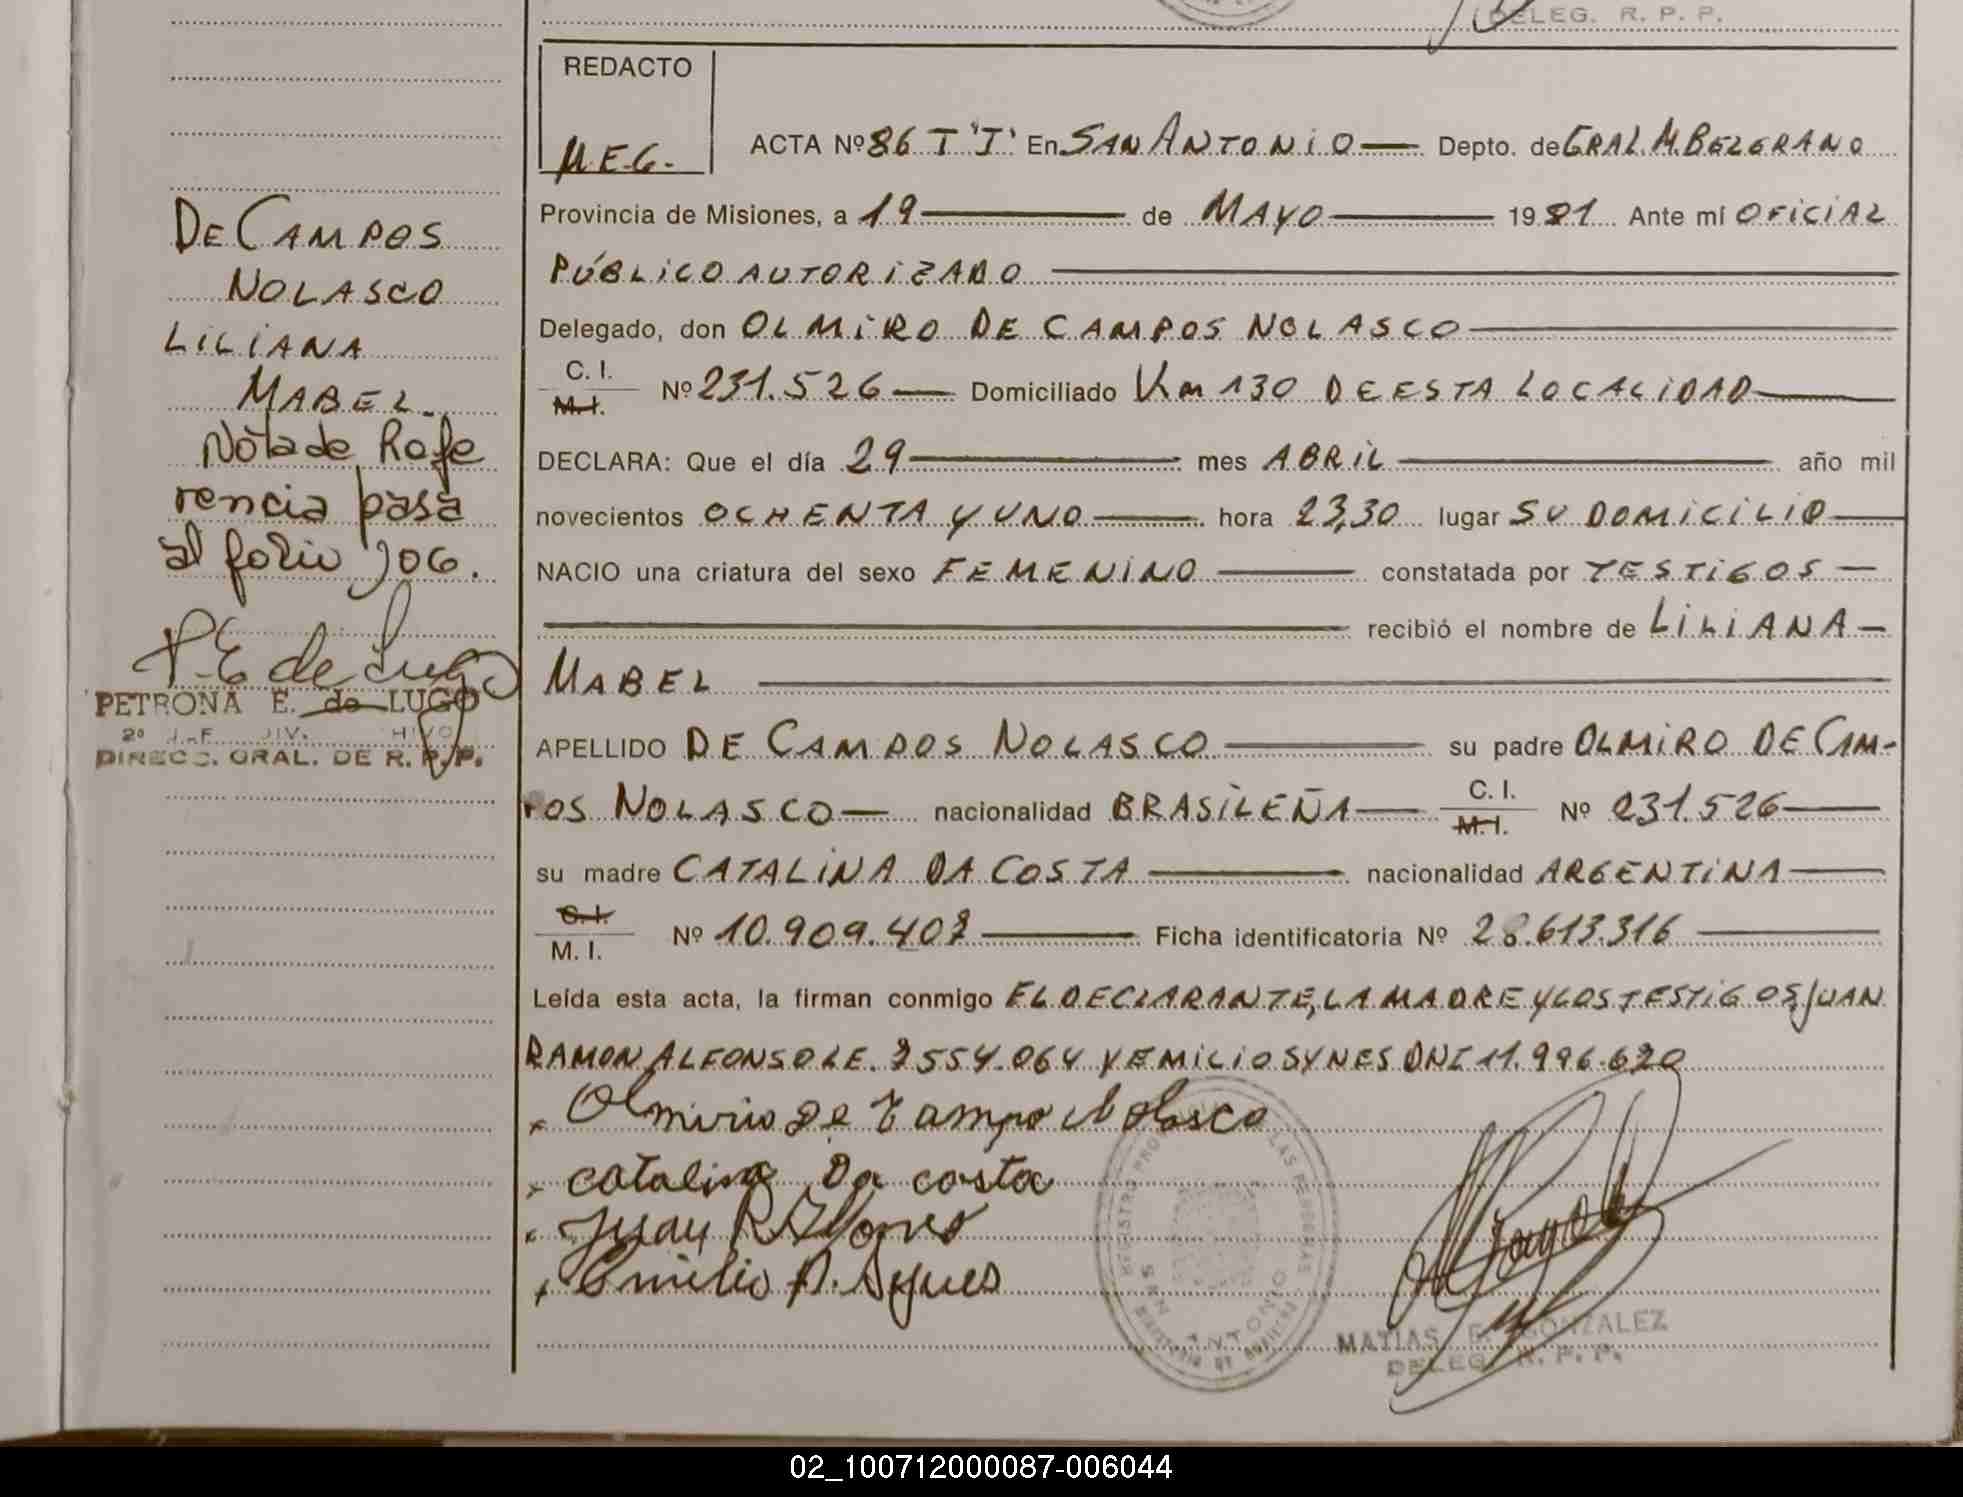 DELEG. R. P. P.
REDACTO
M.E.G.
ACTA Nº 86 T "I" En SAN ANTONIO Depto. de GRAL M. BELGRANO
Provincia de Misiones, a 19 de MAYO 1981 Ante mí OFICIAL
PÚBLICO AUTORIZADO
Delegado, don OLMIRO DE CAMPOS NOLASCO
C. I.
M.I. Nº 231.526 Domiciliado Km 130 DE ESTA LOCALIDAD
DECLARA: Que el día 29 mes ABRIL año mil
novecientos OCHENTA Y UNO hora 23,30 lugar SU DOMICILIO
NACIO una criatura del sexo FEMENINO constatada por TESTIGOS
recibió el nombre de LILIANA
MABEL
APELLIDO DE CAMPOS NOLASCO su padre OLMIRO DE CAM-
POS NOLASCO nacionalidad BRASILEÑA C. I. M.I. Nº 231.526
su madre CATALINA DA COSTA nacionalidad ARGENTINA
C.I.
M. I. Nº 10.909.407 Ficha identificatoria Nº 28.613.316
Leída esta acta, la firman conmigo EL DECLARANTE, LA MADRE Y LOS TESTIGOS JUAN
RAMON ALFONSO L.E. 7554.064 Y EMILIO SYNES DNI 11.996.620
Olmirio De Campo Nolasco
catalina Da costa
Juan R Alfonso
Emilio A. Synes
REGISTRO PROV. LAS PERSONAS
SAN ANTONIO
MATIAS E. GONZALEZ
DELEG. R. P. P.
DE CAMPOS
NOLASCO
LILIANA
MABEL
Nota de Refe
rencia pasa
al folio 106.
P. E de Lugo
PETRONA E. de LUGO
DIRECC. GRAL. DE R. P. P.
02_100712000087-006044